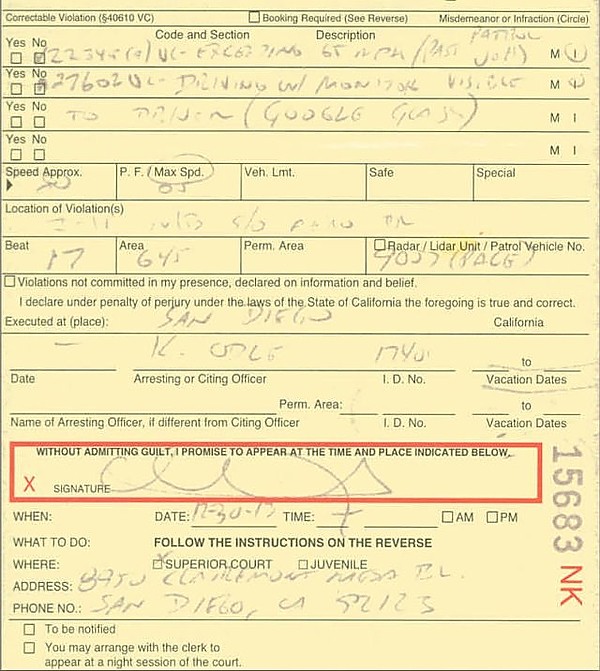 Correctable Violation (§40610 VC) Booking Required (See Reverse) Misdemeanor or Infraction (Circle)
Yes No Code and Section Description PATROL
22349(a) VC- EXCEEDING 65 MPH / (PAST M I
Yes No
27602 VC- DRIVING W/ MONITOR VISIBLE M I
Yes No
TO DRIVER (GOOGLE GLASS) M I
Yes No
M I
Speed Approx. P. F. / Max Spd. Veh. Lmt. Safe Special
65
Location of Violation(s)
S/O
Beat Area Perm. Area Radar / Lidar Unit / Patrol Vehicle No.
17 645 (PACE)
Violations not committed in my presence, declared on information and belief.
I declare under penalty of perjury under the laws of the State of California the foregoing is true and correct.
Executed at (place): SAN DIEGO California
K. ODLE to
Date Arresting or Citing Officer I. D. No. Vacation Dates
Perm. Area: to
Name of Arresting Officer, if different from Citing Officer I.D. No. Vacation Dates
WITHOUT ADMITTING GUILT, I PROMISE TO APPEAR AT THE TIME AND PLACE INDICATED BELOW.
X SIGNATURE
WHEN: DATE: TIME: AM PM
WHAT TO DO: FOLLOW THE INSTRUCTIONS ON THE REVERSE
WHERE: X SUPERIOR COURT JUVENILE
ADDRESS: 8950 CLAIREMONT MESA BL.
PHONE NO.: SAN DIEGO, CA 92123
To be notified
You may arrange with the clerk to
appear at a night session of the court.
15683 NK